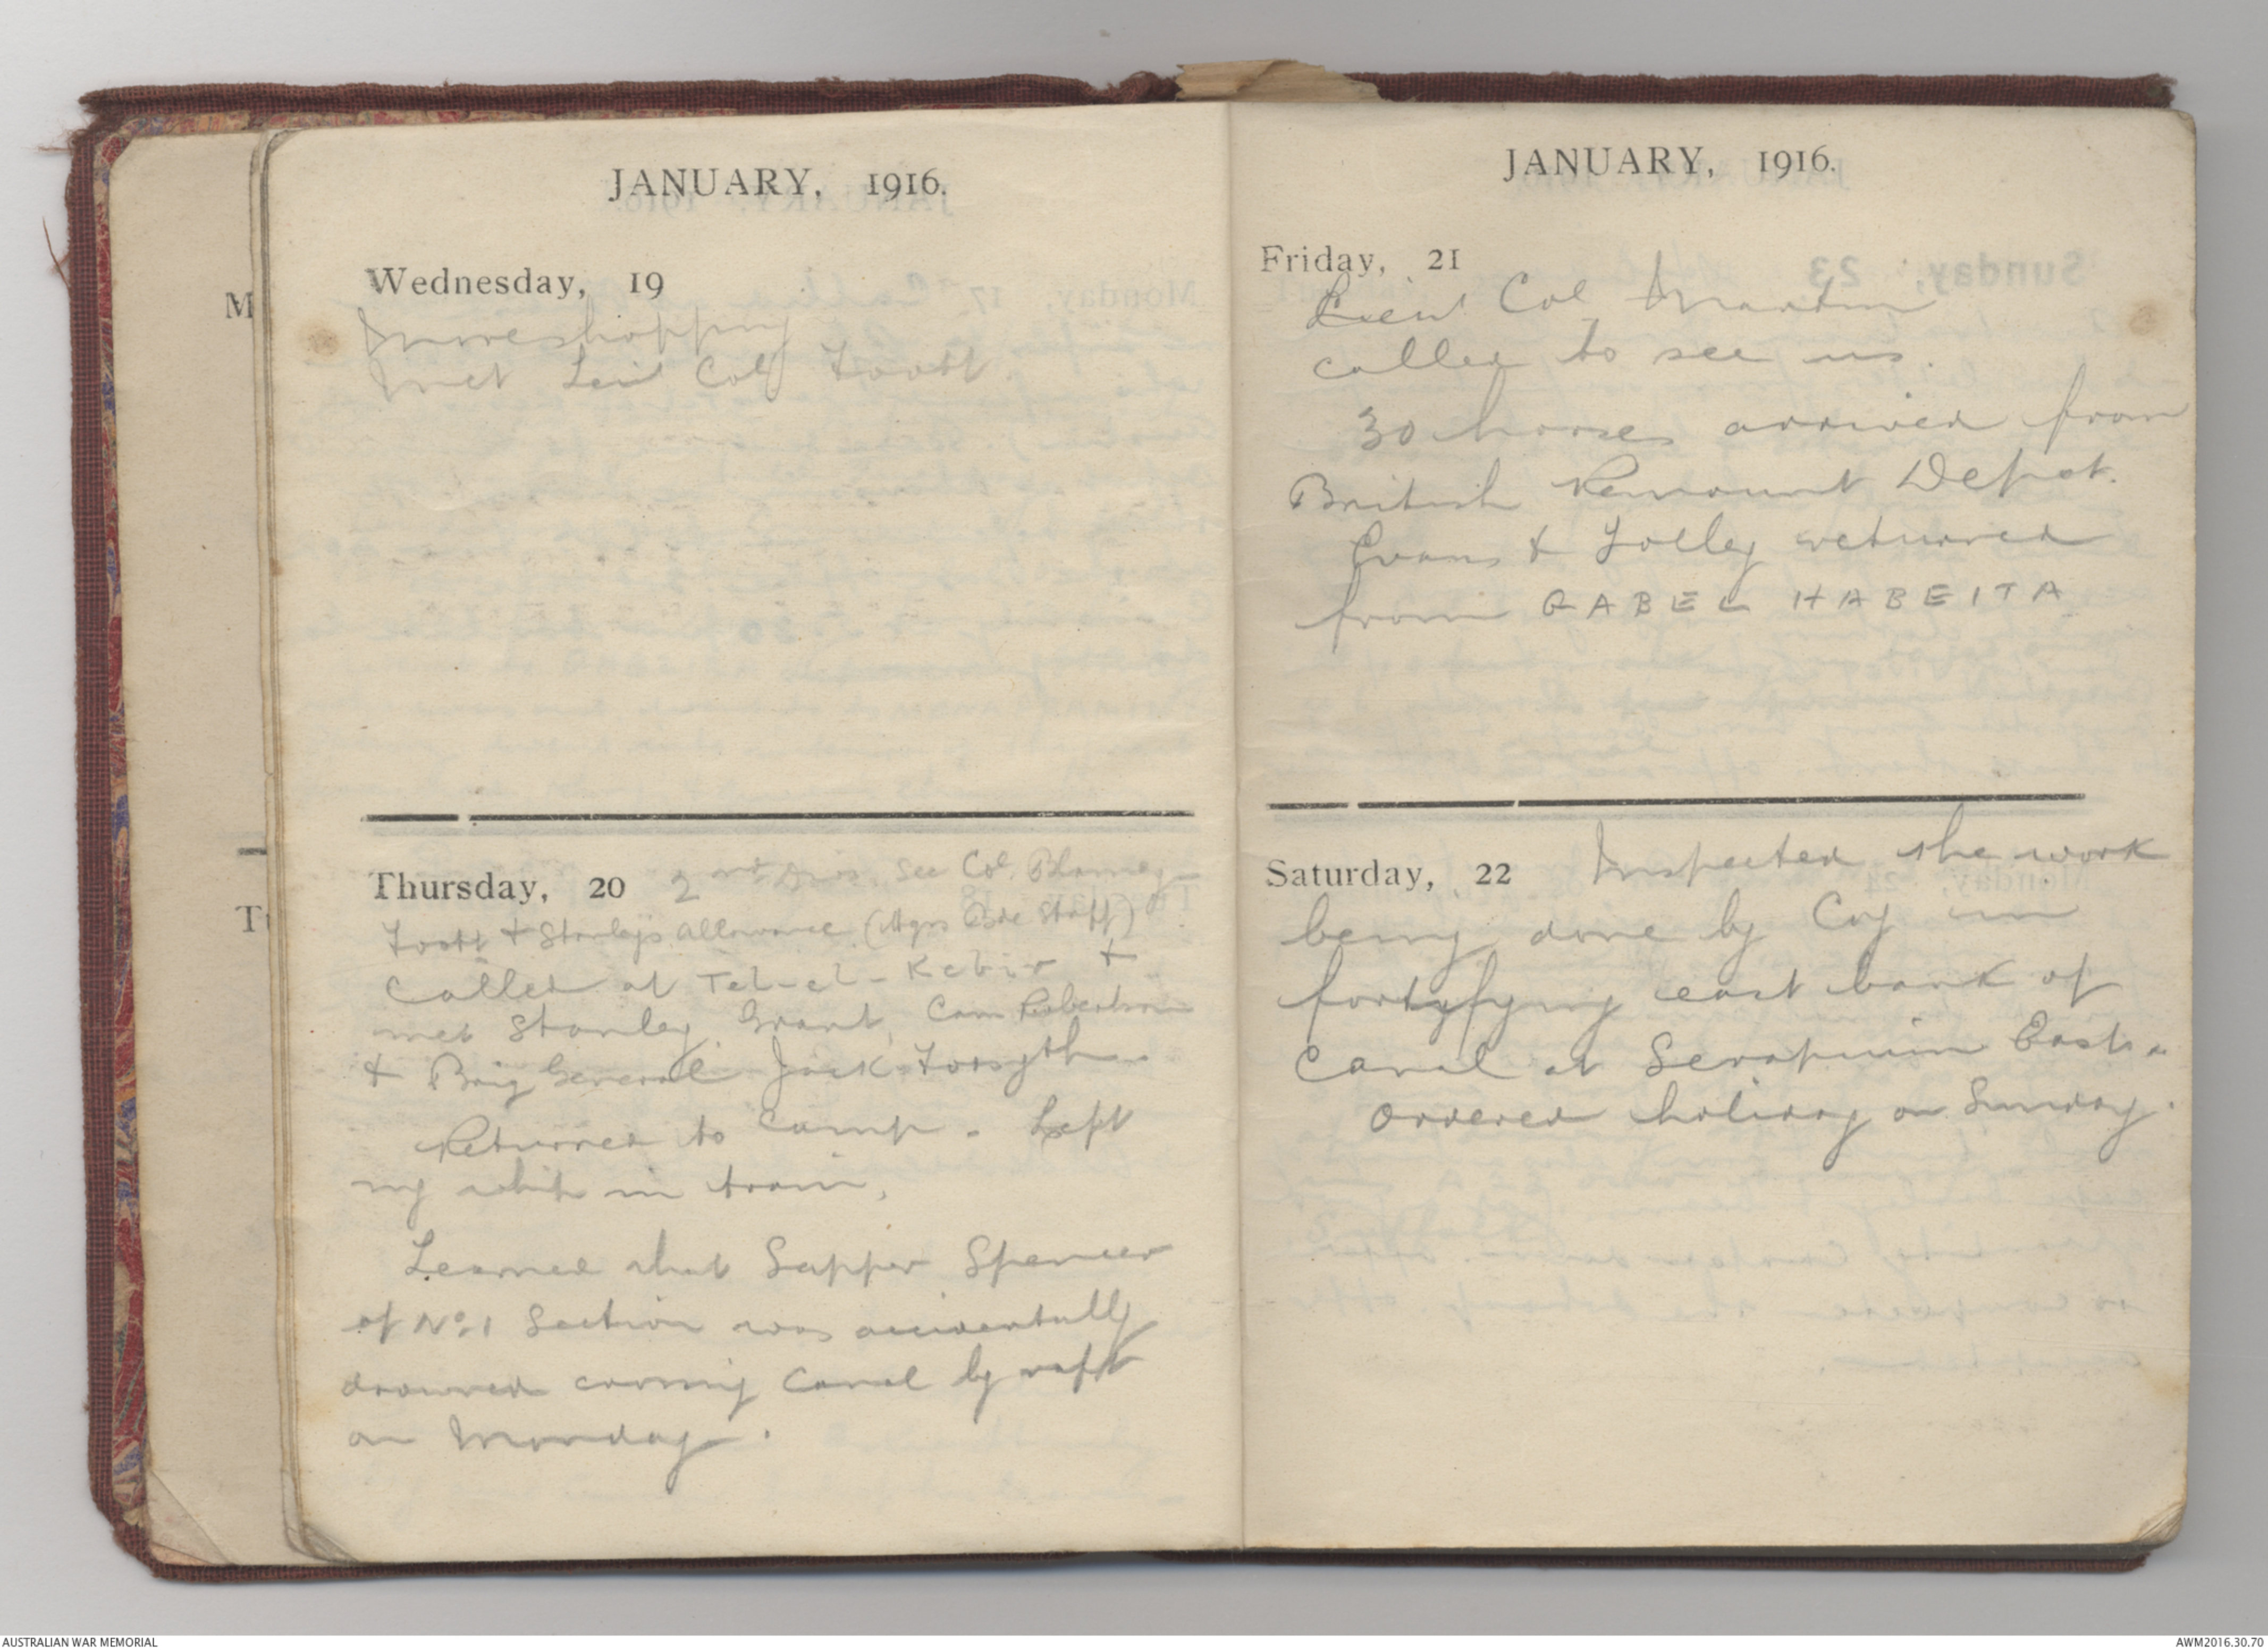 JANUARY, 1916.
Wednesday, 19
More shopping
Met Leut Col Foott.
Thursday, 20 2nd Divn. See Col. Blamey
Foott & Stanleys allowance (Hqrs Bde Staff)
Called at Tel-el-Kebir &
met Stanley, Grant, Cam Robertson
& Brig General Jack Forsyth.
Returned to camp. Left
my whip in train.
Learned that Sapper Spencer
of No. 1 Section was accidentally
drowned crossing Canal by raft
on Monday.
JANUARY, 1916.
Friday, 21
Lieut Col Martin
called to see us.
30 horses arrived from
British Remount Depot.
Evans & Jolley returned
from GABEL HABEITA
Saturday, 22 Inspected the work
being done by Coy in
fortyfying east bank of
Canal at Serapuim East.
Ordered holiday on Sunday.
M
T
AUSTRALIAN WAR MEMORIAL
AWM2016.30.70